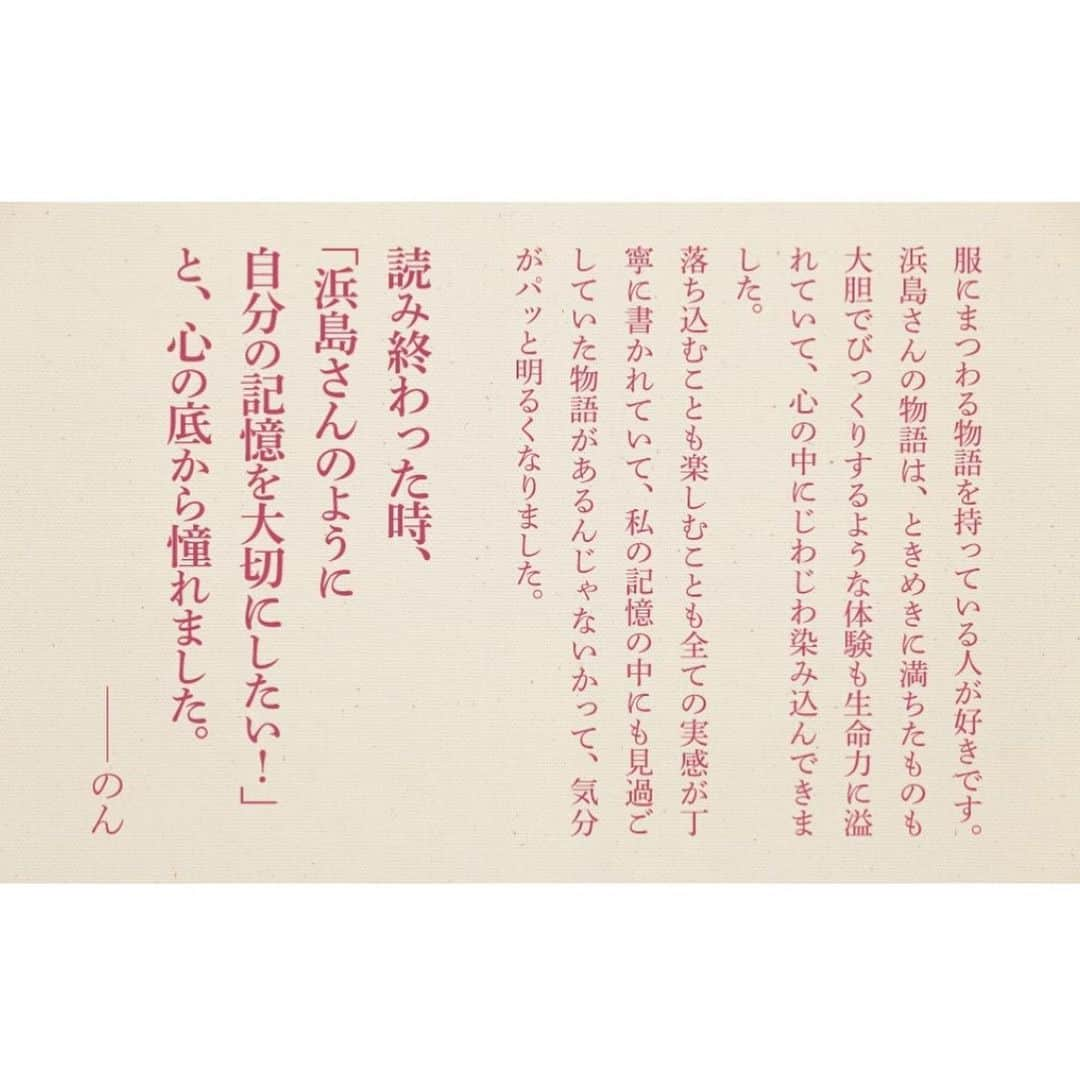 服にまつわる物語を持っている人が好きです。
浜島さんの物語は、ときめきに満ちたものも
大胆でびっくりするような体験も生命力に溢
れていて、心の中にじわじわ染み込んできま
した。
落ち込むことも楽しむことも全ての実感が丁
寧に書かれていて、私の記憶の中にも見過ご
していた物語があるんじゃないかって、気分
がパッと明るくなりました。
読み終わった時、
「浜島さんのように
自分の記憶を大切にしたい！」
と、心の底から憧れました。
――のん